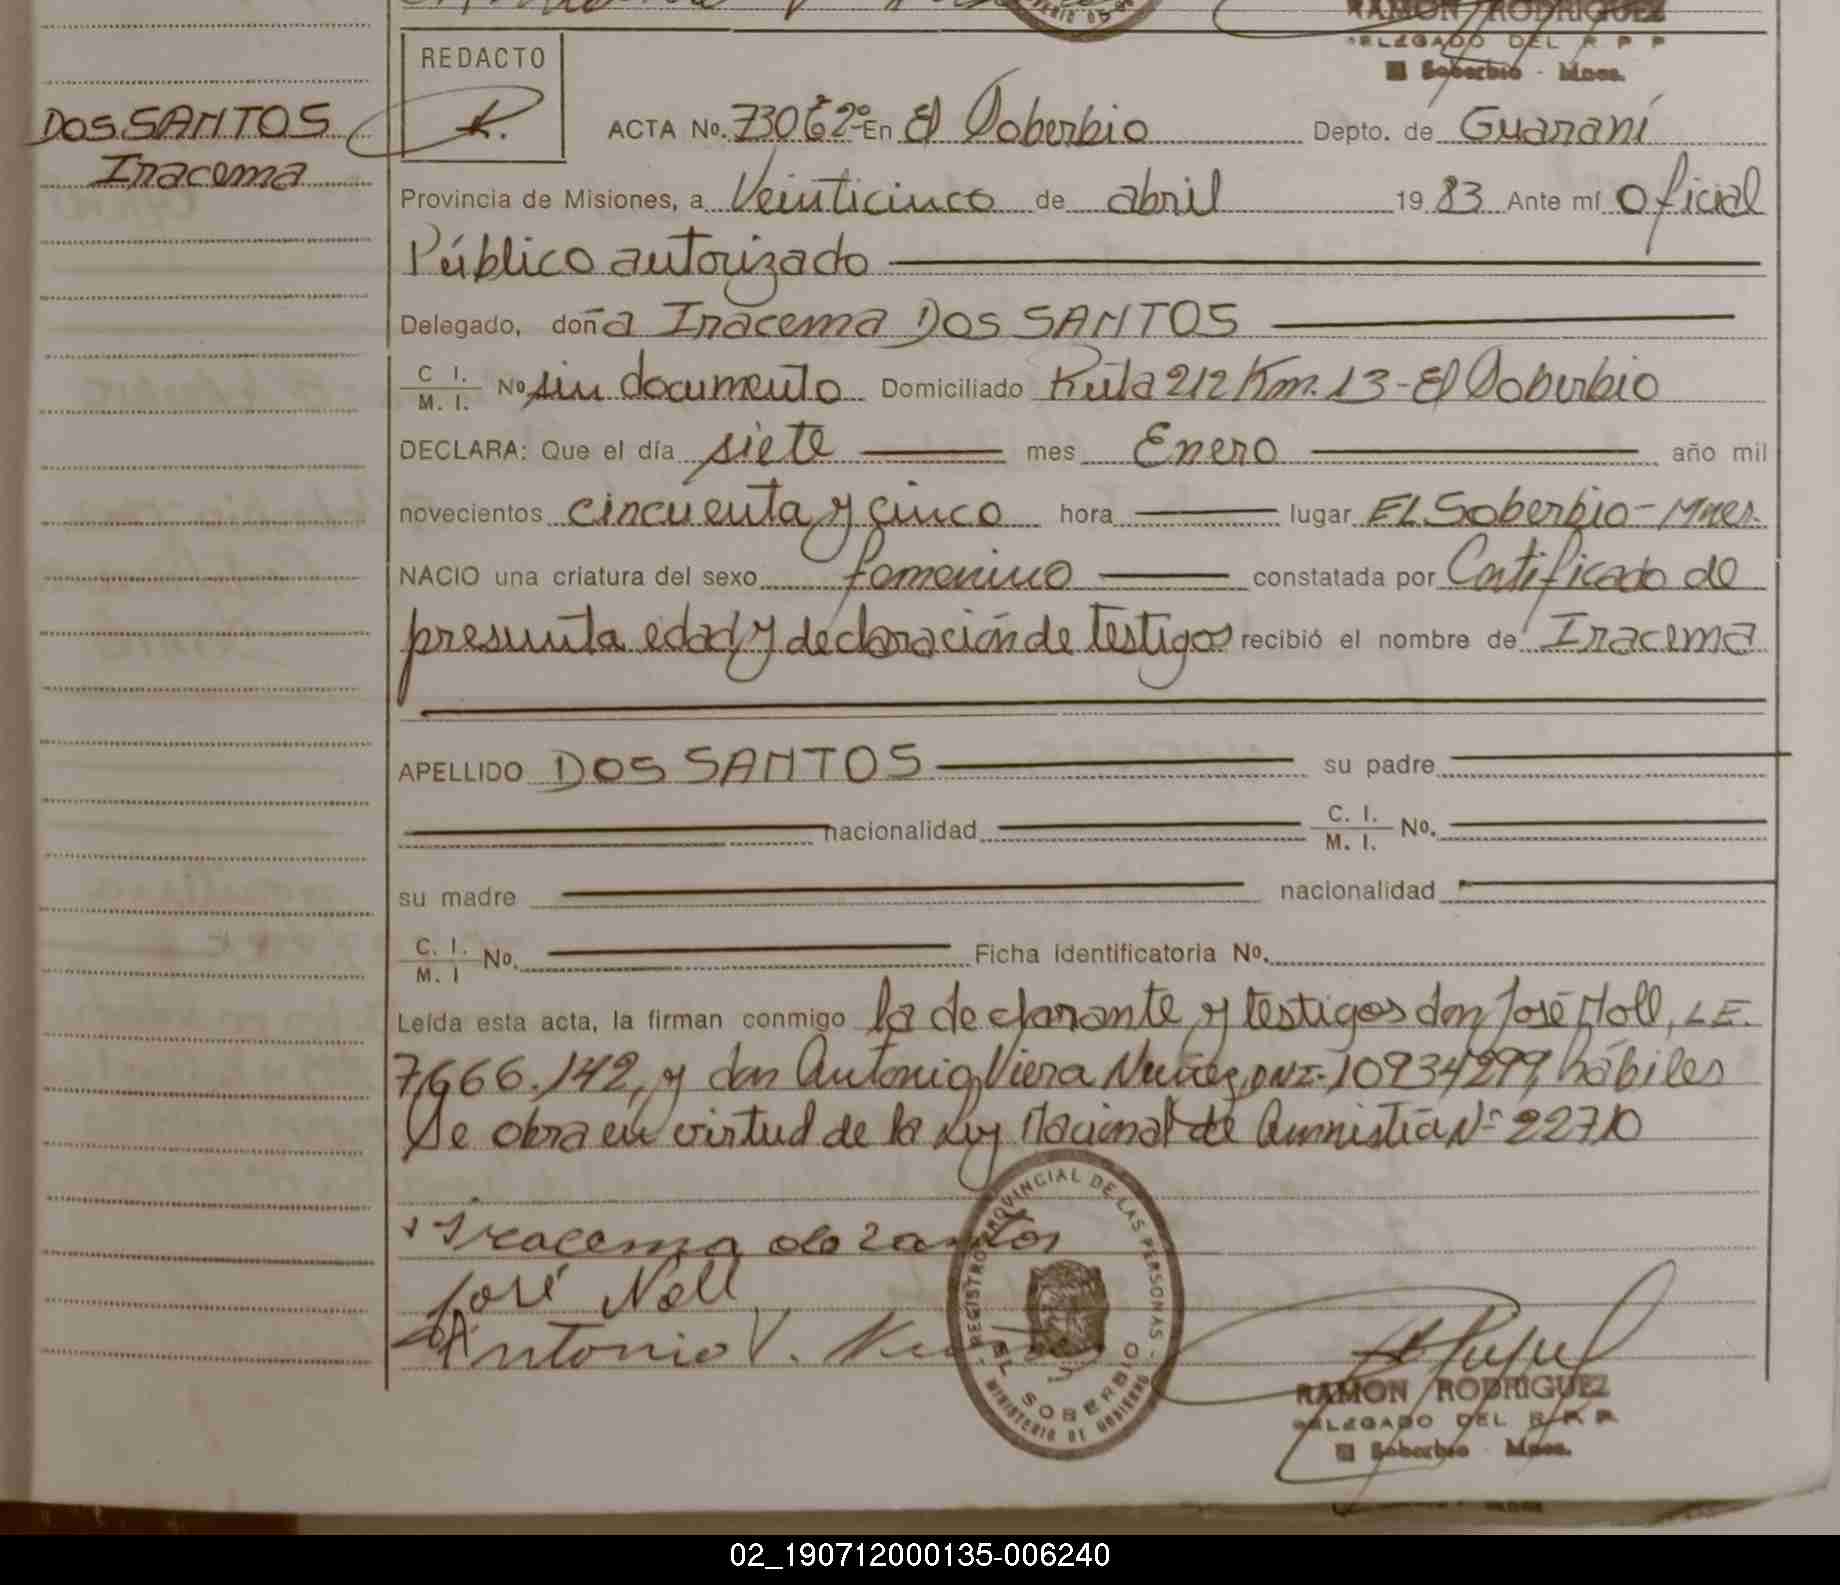 RAMON RODRIGUEZ
DELEGADO DEL R P P
El Soberbio - Mnes.
REDACTO
DOS SANTOS
Iracema
ACTA No. 730 Eº 2º En El Soberbio Depto. de Guaraní
Provincia de Misiones, a Veinticinco de abril 19 83 Ante mí Oficial
Público autorizado
Delegado, doña Iracema DOS SANTOS
C I. M. I. No sin documento Domiciliado Ruta 212 Km. 13 - El Soberbio
DECLARA: Que el día siete mes Enero año mil
novecientos cincuenta y cinco hora lugar EL Soberbio - Mnes.
NACIO una criatura del sexo femenino constatada por Certificado de
presunta edad y declaración de testigos recibió el nombre de Iracema
APELLIDO DOS SANTOS su padre
nacionalidad C. I. M. I. No.
su madre nacionalidad
C. I. M. I No. Ficha identificatoria No.
Leída esta acta, la firman conmigo la declarante y testigos don José Noll, L.E.
7.666.142, y don Antonio Viera Nuñez, DNI. 10934299, hábiles
Se obra en virtud de la Ley Nacional de Amnistía Nº 22710
Iracema do Santos
José Noll
Antonio V.
REGISTRO PROVINCIAL DE LAS PERSONAS
EL SOBERBIO
MINISTERIO DE GOBIERNO
RAMON RODRIGUEZ
DELEGADO DEL R. P. P.
El Soberbio - Mnes.
02_190712000135-006240